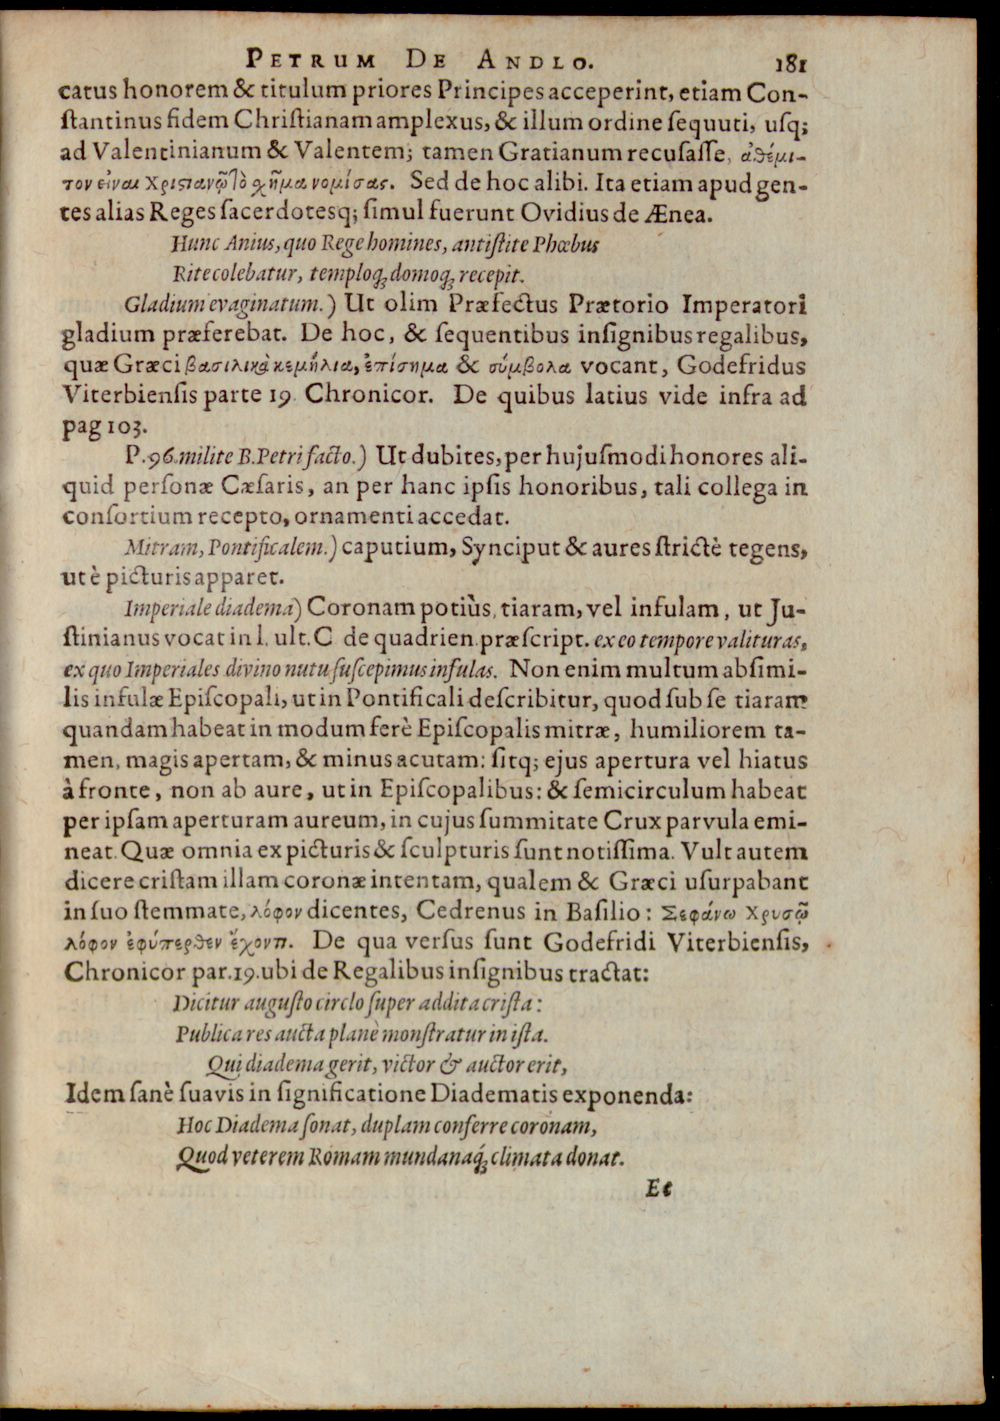 PETRUM DE ANDLO. 181
catus honorem & titulum priores Principes acceperint, etiam Con-
ſtantinus fidem Chriſtianam amplexus, & illum ordine ſequuti, uſq;
ad Valentinianum & Valentem; tamen Gratianum recuſaſſe, ἀθέμι-
τον εἶναι Χριστιανῷ τὸ σχῆμα νομίσας. Sed de hoc alibi. Ita etiam apud gen-
tes alias Reges ſacerdotesq; ſimul fuerunt Ovidius de Ænea.
Hunc Anius, quo Rege homines, antiſtite Phœbus
Rite colebatur, temploq; domoq; recepit.
Gladium evaginatum.) Ut olim Præfectus Prætorio Imperatori
gladium præferebat. De hoc, & ſequentibus inſignibus regalibus,
quæ Græci βασιλικὰ κεμήλια, ἐπίσημα & σύμβολα vocant, Godefridus
Viterbienſis parte 19 Chronicor. De quibus latius vide infra ad
pag 103.
P. 96. milite B. Petri facto.) Ut dubites, per hujuſmodi honores ali-
quid perſonæ Cæſaris, an per hanc ipſis honoribus, tali collega in
conſortium recepto, ornamenti accedat.
Mitram, Pontificalem.) caputium, Synciput & aures ſtrictè tegens,
ut è picturis apparet.
Imperiale diadema) Coronam potiùs, tiaram, vel infulam, ut Ju-
ſtinianus vocat in l. ult. C de quadrien. præſcript. ex eo tempore valituras,
ex quo Imperiales divino nutu ſuſcepimus infulas. Non enim multum abſimi-
lis infulæ Epiſcopali, ut in Pontificali deſcribitur, quod ſub ſe tiaram
quandam habeat in modum ferè Epiſcopalis mitræ, humiliorem ta-
men, magis apertam, & minus acutam: ſitq; ejus apertura vel hiatus
à fronte, non ab aure, ut in Epiſcopalibus: & ſemicirculum habeat
per ipſam aperturam aureum, in cujus ſummitate Crux parvula emi-
neat. Quæ omnia ex picturis & ſculpturis ſunt notiſſima. Vult autem
dicere criſtam illam coronæ intentam, qualem & Græci uſurpabant
in ſuo ſtemmate, λόφον dicentes, Cedrenus in Baſilio: Στεφάνω Χρυσῷ
λόφον ἐφύπερθεν ἔχοντι. De qua verſus ſunt Godefridi Viterbienſis,
Chronicor par. 19. ubi de Regalibus inſignibus tractat:
Dicitur auguſto circlo ſuper addita criſta:
Publica res aucta planè monſtratur in iſta.
Qui diadema gerit, victor & auctor erit,
Idem ſanè ſuavis in ſignificatione Diadematis exponenda:
Hoc Diadema ſonat, duplam conferre coronam,
Quod veterem Romam mundanaq́; climata donat.
Et